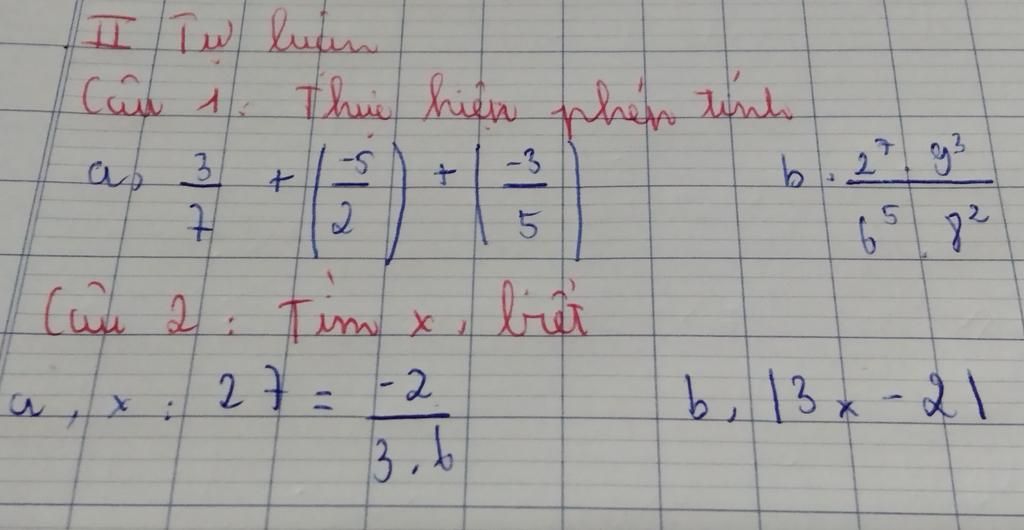 II Tự luận
Câu 1: Thực hiện phép tính
a, 3/7 + (-5/2) + (-3/5) b. 2^7 . 9^3 / 6^5 . 8^2
Câu 2: Tìm x, biết
a, x : 27 = -2 / 3.6 b, |3x - 2|